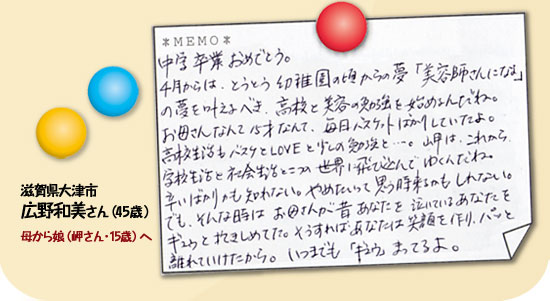 *MEMO*
中学卒業おめでとう。
4月からは、とうとう幼稚園の頃からの夢「美容師さんになる」
の夢を叶えるべき、高校と美容の勉強を始めるんだね。
お母さんなんて15才なんて、毎日バスケットばかりしていたよ。
高校生活もバスケとLOVEと少しの勉強と…。岬は、これから、
学校生活と社会生活と二つの世界に飛び込んでゆくんだね。
辛いばかりかも知れない。やめたいって思う時来るのかもしれない。
でも、そんな時は お母さんが昔 あなたを 泣いているあなたを
ギュウと抱きしめてた。そうすればあなたは笑顔を作り、パッと
離れていけたから。いつまでも「ギュウ」まってるよ。
滋賀県大津市
広野和美さん(45歳)
母から娘(岬さん・15歳)へ